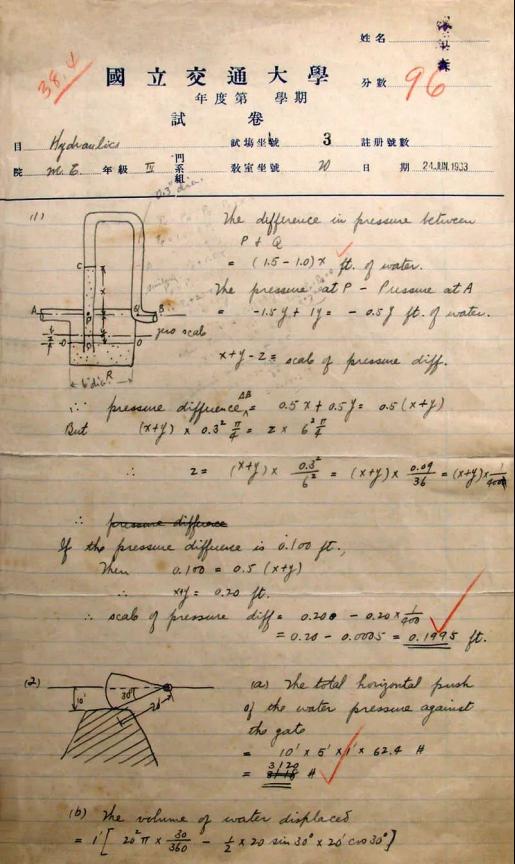 姓名
38.4
國立交通大學
分數 96
年度第 學期
試 卷
目 Hydraulics 試塲坐號 3 註册號數
院 M.E. 年級 IV 門系組 教室坐號 20 日期 24 JUN.1933
(1) The difference in pressure between
P & Q
= (1.5 - 1.0) x ft. of water.
The pressure at P - Pressure at A
= -1.5y + 1y = - 0.5y ft. of water.
x+y-z = scale of pressure diff.
0.3" dia.
C
x
A P Q B
y
zero scale
O O
z
R
6" dia.
∴ pressure difference AB = 0.5x + 0.5y = 0.5(x+y)
But (x+y) × 0.3² π/4 = z × 6² π/4
∴ z = (x+y) × 0.3²/6² = (x+y) × 0.09/36 = (x+y) × 1/400
∴ pressure difference
If the pressure difference is 0.100 ft.,
Then 0.100 = 0.5 (x+y)
∴ x+y = 0.20 ft.
∴ scale of pressure diff = 0.200 - 0.20 × 1/400
= 0.20 - 0.0005 = 0.1995 ft.
(2) (a) The total horizontal push
10' 30° 20'
of the water pressure against
the gate
= 10' × 5' × 1' × 62.4 #
= 3120 #
(b) The volume of water displaced
= 1' [ 20² π × 30/360 - 1/2 × 20 sin 30° × 20' cos 30° ]